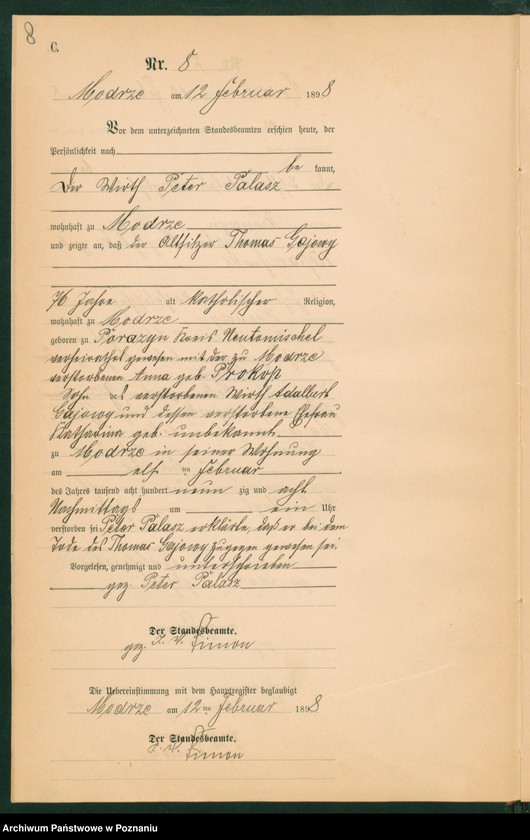 8
C.
Nr. 8
Modrze am 12 Februar 1898
Vor dem unterzeichneten Standesbeamten erschien heute, der
Persönlichkeit nach
be kannt,
Der Wirth Peter Palasz
wohnhaft zu Modrze
und zeigte an, daß der Altsitzer Thomas Gajowy
76 Jahre alt katholischer Religion,
wohnhaft zu Modrze
geboren zu Porazyn Kreis Neutomischel
verheirathet gewesen mit der zu Modrze
verstorbenen Anna geb. Prokop
Sohn des verstorbenen Wirth Adalbert
Gajowy und dessen verstorbene Ehefrau
Katharina geb. unbekannt
zu Modrze in seiner Wohnung
am elf ten Februar
des Jahres tausend acht hundert neun zig und acht
Nachmittags um ein Uhr
verstorben sei Peter Palasz erklärte, daß er bei dem
Tode des Thomas Gajowy zugegen gewesen sei.
Vorgelesen, genehmigt und unterschrieben
gez. Peter Palasz
Der Standesbeamte.
gez. I. V. Simon
Die Uebereinstimmung mit dem Hauptregister beglaubigt
Modrze am 12ten Februar 1898
Der Standesbeamte.
I. V. Simon
Archiwum Państwowe w Poznaniu